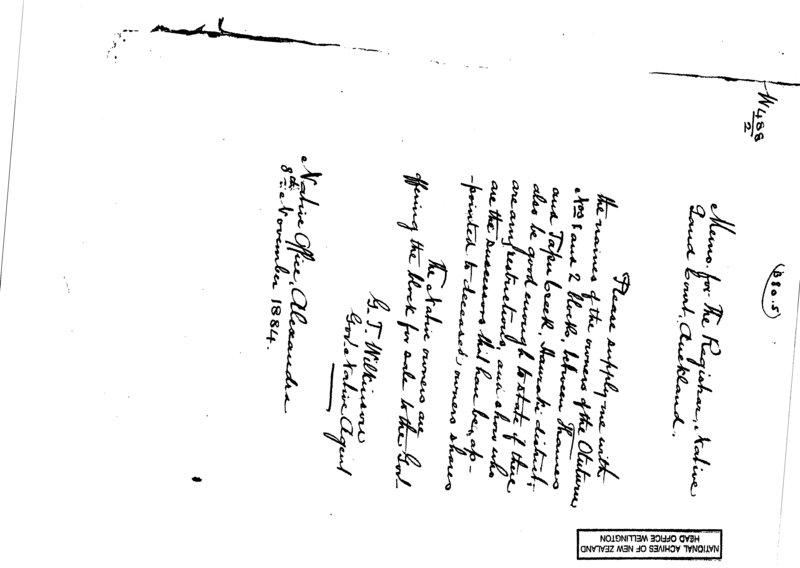 W488
2
(880.5)
Memo. for The Registrar, Native
Land Court, Auckland.
Please supply me with
the names of the owners of the
Nos 1 and 2 blocks, between Thames
and Tapu Creek, Hauraki district,
also be good enough to state if there
are any restrictions, and show who
are the successors that have been ap-
-pointed to deceased owners shares
The Native owners are
offering the block for sale to the Govt
G. T. Wilkinson
Govt Native Agent
Native Office, Alexandra
8th November 1884.
NATIONAL ACHIVES OF NEW ZEALAND
HEAD OFFICE WELLINGTON